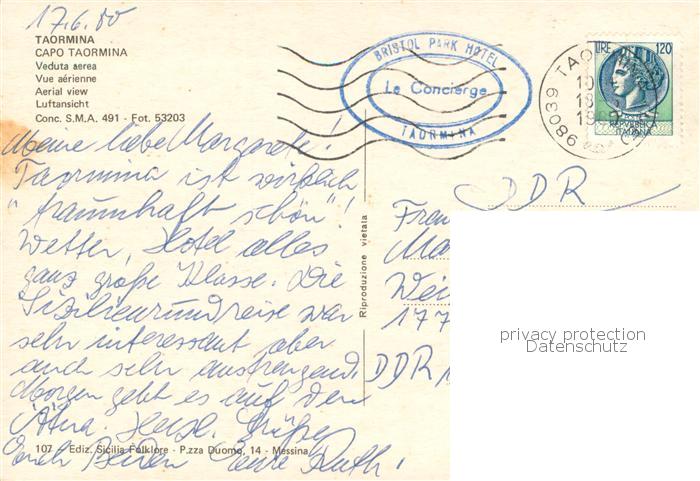 17.6.80
TAORMINA
CAPO TAORMINA
Veduta aerea
Vue aérienne
Aerial view
Luftansicht
Conc. S.M.A. 491 - Fot. 53203
Meine liebe Margarete!
Taormina ist wirklich
"traumhaft schön"!
Wetter, Hotel alles
ganz große Klasse. Die
Sizilienrundreise war
sehr interessant aber
auch sehr anstrengend.
Morgen geht es auf den
Ätna. Herzl. Grüße
Euch Beiden Eure Ruth!
107 Ediz. Sicilia Folklore - P.zza Duomo, 14 - Messina
Riproduzione vietata
BRISTOL PARK HOTEL
Le Concierge
TAORMINA
98039 TAO
18
LIRE 120
REPVBBLICA
ITALIANA
DDR
Frau
Ma
Wei
177
DDR
privacy protection
Datenschutz